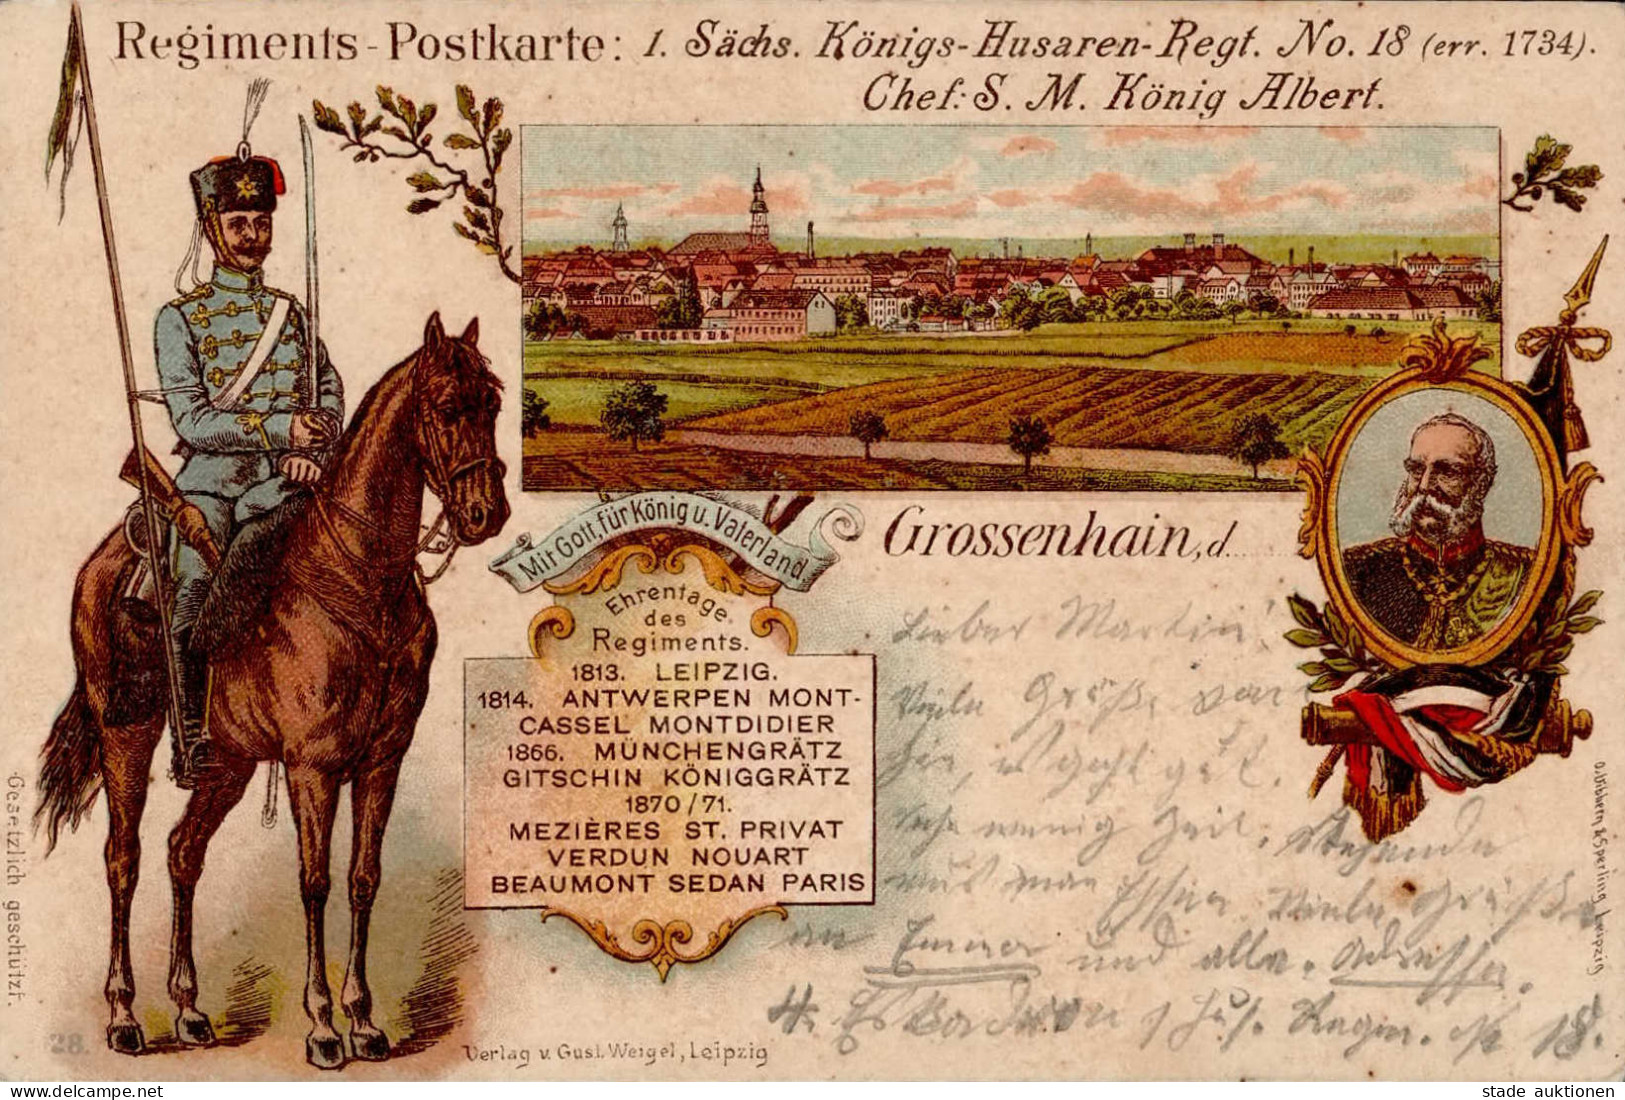 Regiments-Postkarte: 1. Sächs. Königs-Husaren-Regt. No. 18 (err. 1734).
Chef: S. M. König Albert.
Mit Gott, für König u. Vaterland
Ehrentage
des
Regiments.
1813. LEIPZIG.
1814. ANTWERPEN MONT-
CASSEL MONTDIDIER
1866. MÜNCHENGRÄTZ
GITSCHIN KÖNIGGRÄTZ
1870/71.
MEZIÈRES ST. PRIVAT
VERDUN NOUART
BEAUMONT SEDAN PARIS
Grossenhain, d.
Lieber Martin!
Viele Grüße von
hier, es geht gut.
wenig Zeit.
muß man Viele Grüße
an und alle. Adresse.
4. Eskadron Hus. Regm. No 18.
Gesetzlich geschützt.
28.
Verlag v. Gust. Weigel, Leipzig
Wibbern & Sperling Leipzig
www.delcampe.net
stade auktionen